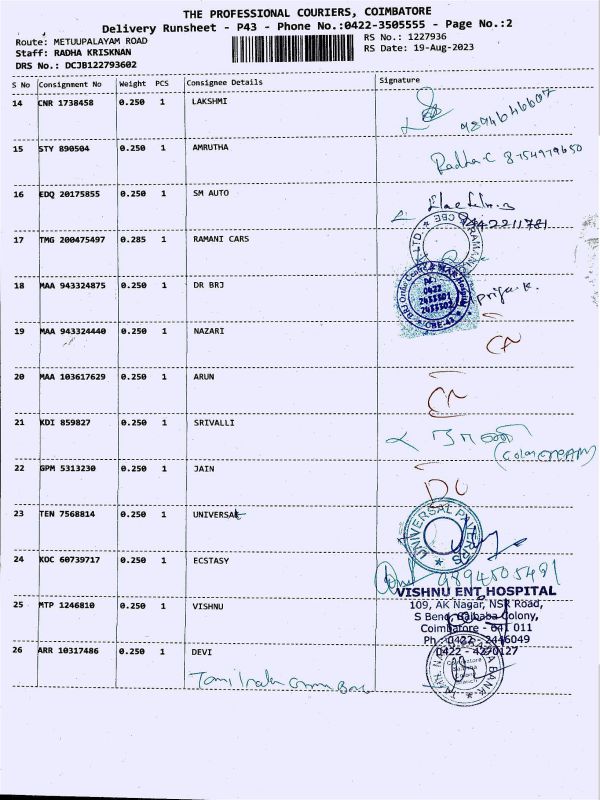 THE PROFESSIONAL COURIERS, COIMBATORE
Delivery Runsheet - P43 - Phone No.:0422-3505555 - Page No.:2
Route: METUUPALAYAM ROAD
RS No.: 1227936
Staff: RADHA KRISKNAN
RS Date: 19-Aug-2023
DRS No.: DCJB122793602
S No Consignment No Weight PCS Consignee Details Signature
14 CNR 1738458 0.250 1 LAKSHMI
9894646607
15 STY 890504 0.250 1 AMRUTHA
Radha-C 8754979650
16 EDQ 20175855 0.250 1 SM AUTO
9442211781
17 TMG 200475497 0.285 1 RAMANI CARS
18 MAA 943324875 0.250 1 DR BRJ
0422
2433501
2433502
CBE-43
Priya.K.
19 MAA 943324440 0.250 1 NAZARI
20 MAA 103617629 0.250 1 ARUN
21 KDI 859827 0.250 1 SRIVALLI
22 GPM 5313230 0.250 1 JAIN
DC
23 TEN 7568814 0.250 1 UNIVERSAL
UNIVERSAL PAVERS
24 KOC 60739717 0.250 1 ECSTASY
9894505491
VISHNU ENT HOSPITAL
25 MTP 1246810 0.250 1 VISHNU
109, AK Nagar, NSR Road,
S Bend, Saibaba Colony,
Coimbatore - 641 011
Ph : 0422 - 2446049
0422 - 4270127
26 ARR 10317486 0.250 1 DEVI